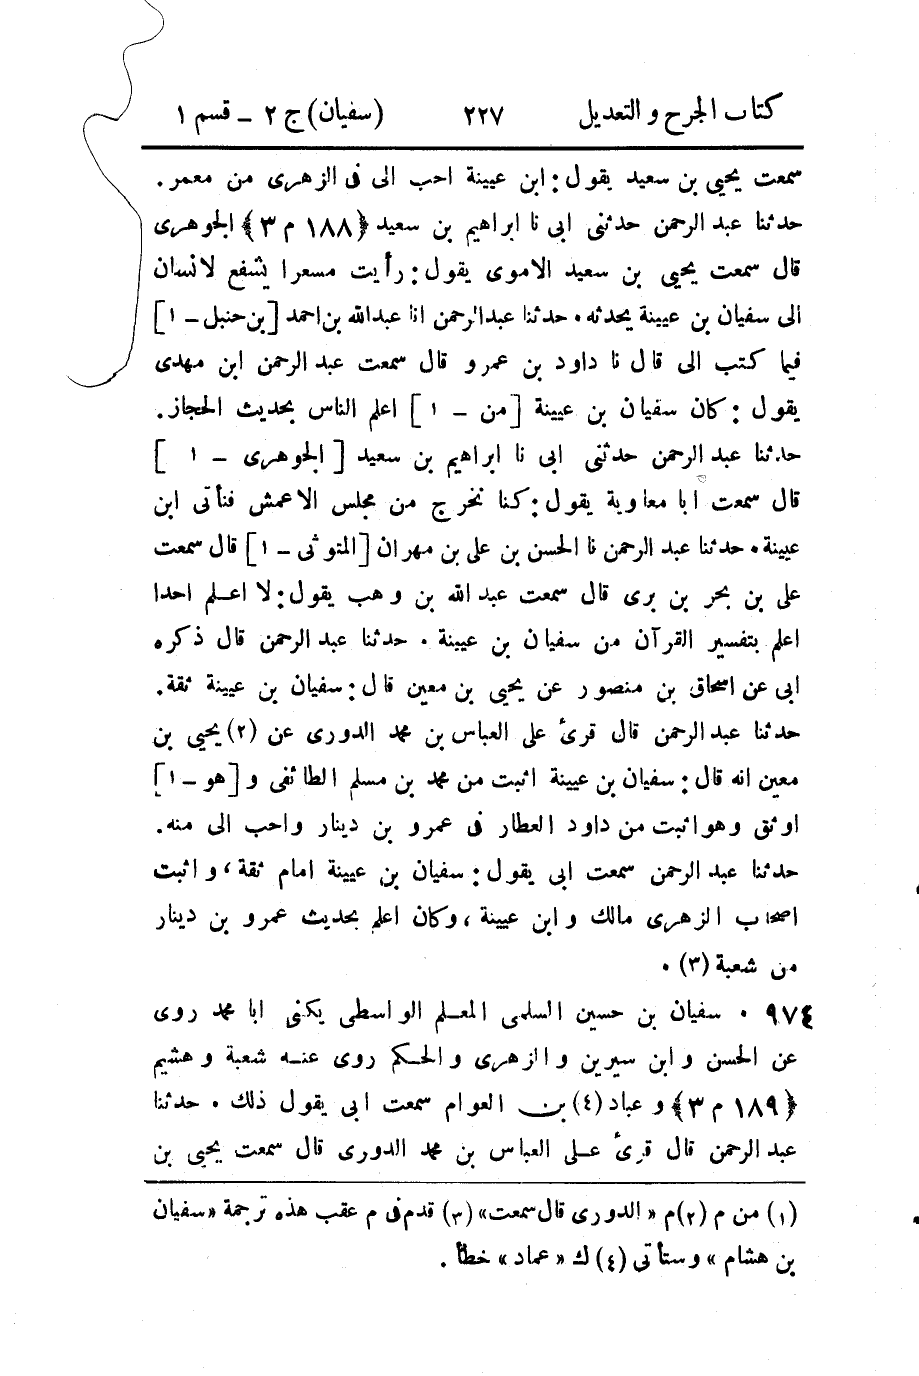 كتاب الجرح والتعديل ٢٢٧ (سفيان) ج ٢ - قسم ١
سمعت يحيى بن سعيد يقول: ابن عيينة احب الى فى الزهرى من معمر.
حدثنا عبد الرحمن حدثنى ابى نا ابراهيم بن سعيد ﴿١٨٨ م ٣﴾ الجوهرى
قال سمعت يحيى بن سعيد الاموى يقول: رأيت مسعرا يشفع لانسان
الى سفيان بن عيينة يحدثه . حدثنا عبدالرحمن انا عبدالله بن احمد [بن حنبل - ١]
فيما كتب الى قال نا داود بن عمرو قال سمعت عبد الرحمن ابن مهدى
يقول: كان سفيان بن عيينة [من - ١] اعلم الناس بحديث الحجاز.
حدثنا عبد الرحمن حدثنى ابى نا ابراهيم بن سعيد [الجوهرى - ١]
قال سمعت ابا معاوية يقول: كنا نخرج من مجلس الاعمش فنأتى ابن
عيينة . حدثنا عبد الرحمن نا الحسن بن على بن مهران [المتوثى - ١] قال سمعت
على بن بحر بن برى قال سمعت عبد الله بن وهب يقول: لا اعلم احدا
اعلم بتفسير القرآن من سفيان بن عيينة . حدثنا عبد الرحمن قال ذكره
ابى عن اسحاق بن منصور عن يحيى بن معين قال: سفيان بن عيينة ثقة.
حدثنا عبد الرحمن قال قرئ على العباس بن محمد الدورى عن (٢) يحيى بن
معين انه قال: سفيان بن عيينة اثبت من محمد بن مسلم الطائفى و [هو - ١]
اوثق وهو اثبت من داود العطار فى عمرو بن دينار واحب الى منه.
حدثنا عبد الرحمن سمعت ابى يقول: سفيان بن عيينة امام ثقة، واثبت
اصحاب الزهرى مالك وابن عيينة، وكان اعلم بحديث عمرو بن دينار
من شعبة (٣) .
٩٧٤ . سفيان بن حسين السلمى المعلم الواسطى يكنى ابا محمد روى
عن الحسن وابن سيرين والزهرى والحكم روى عنه شعبة وهشيم
﴿١٨٩ م ٣﴾ وعباد (٤) بن العوام سمعت ابى يقول ذلك . حدثنا
عبد الرحمن قال قرئ على العباس بن محمد الدورى قال سمعت يحيى بن
(١) من م (٢) م «الدورى قال سمعت» (٣) قدم فى م عقب هذه ترجمة «سفيان
بن هشام» وستأتى (٤) ك «عماد» خطأ .